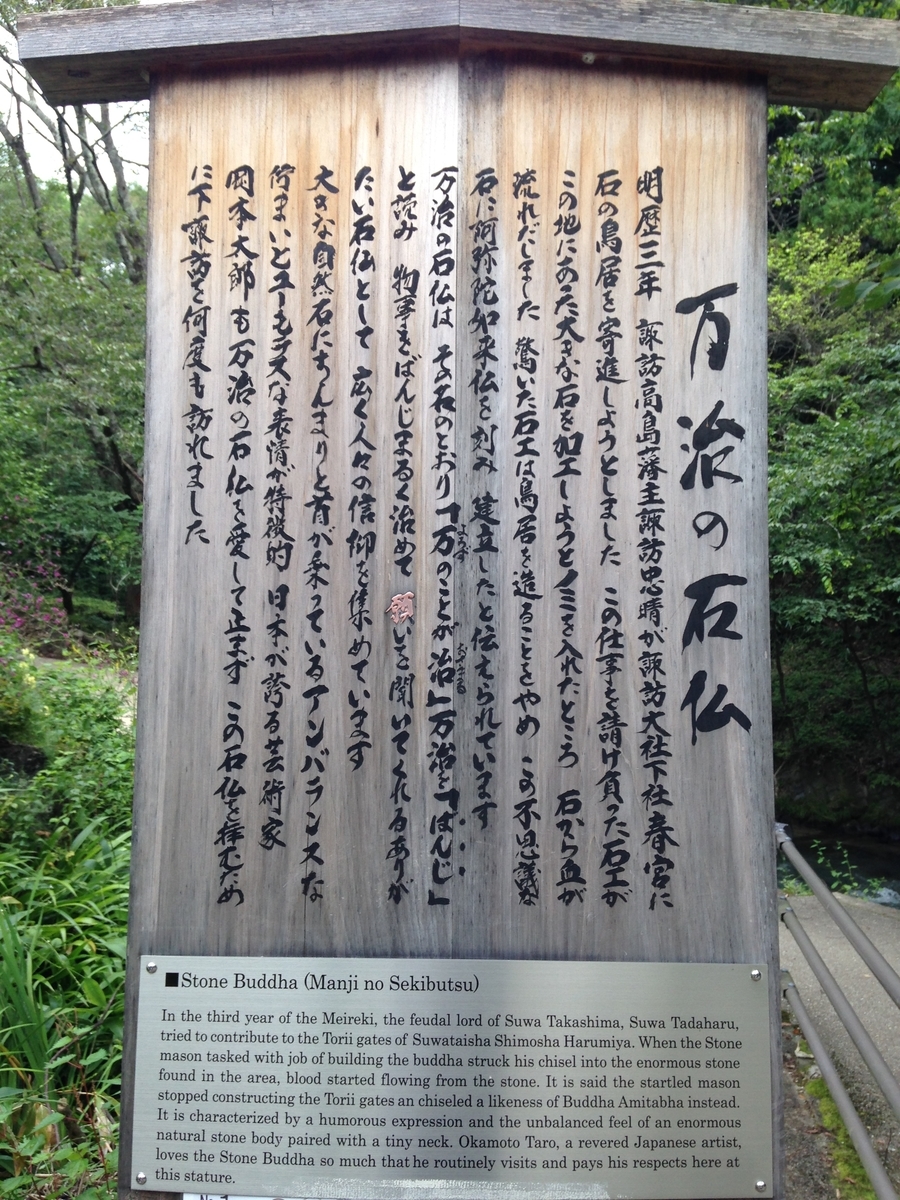 万治の石仏
明歴三年 諏訪高島藩主諏訪忠晴が諏訪大社下社 春宮に
石の鳥居を寄進しようとしました この仕事を請け負った石工が
この地にあった大きな石を加工しようとノミを入れたところ 石から血が
流れだしました 驚いた石工は鳥居を造ることをやめ この不思議な
石に阿弥陀如来仏を刻み 建立したと伝えられています
万治の石仏は その名のとおり「万のことが治」万治を「ばんじ」
よろず おさまる
と読み 物事をばんじまるく治めて 願いを聞いてくれるありが
たい石仏として 広く人々の信仰を集めています
大きな自然石にちんまりと首が乗っているアンバランスな
佇まいとユーモラスな表情が特徴的 日本が誇る芸術家
岡本太郎も万治の石仏を愛して止まず この石仏を拝むため
に下諏訪を何度も訪れました
■Stone Buddha (Manji no Sekibutsu)
In the third year of the Meireki, the feudal lord of Suwa Takashima, Suwa Tadaharu,
tried to contribute to the Torii gates of Suwataisha Shimosha Harumiya. When the Stone
mason tasked with job of building the buddha struck his chisel into the enormous stone
found in the area, blood started flowing from the stone. It is said the startled mason
stopped constructing the Torii gates an chiseled a likeness of Buddha Amitabha instead.
It is characterized by a humorous expression and the unbalanced feel of an enormous
natural stone body paired with a tiny neck. Okamoto Taro, a revered Japanese artist,
loves the Stone Buddha so much that he routinely visits and pays his respects here at
this stature.